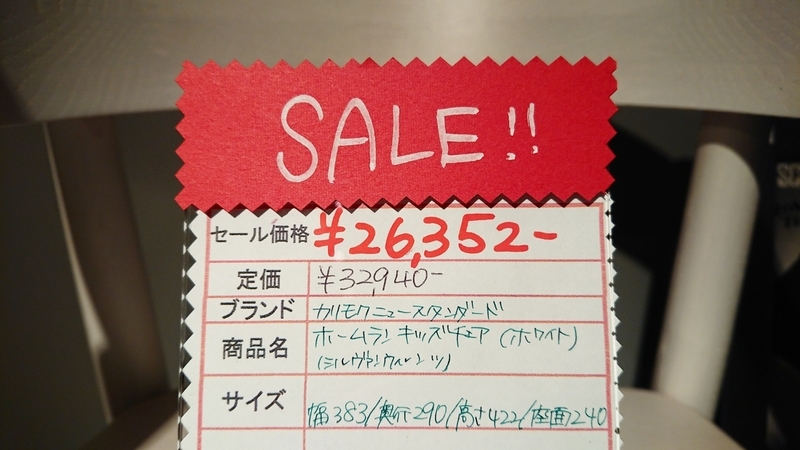 SALE!!
セール価格 ¥26,352-
定価 ¥32,940-
ブランド カリモクニュースタンダード
商品名 ホームランキッズチェア (ホワイト)
(シルヴァンウィレンツ)
サイズ 幅383/奥行290/高さ422/座面240